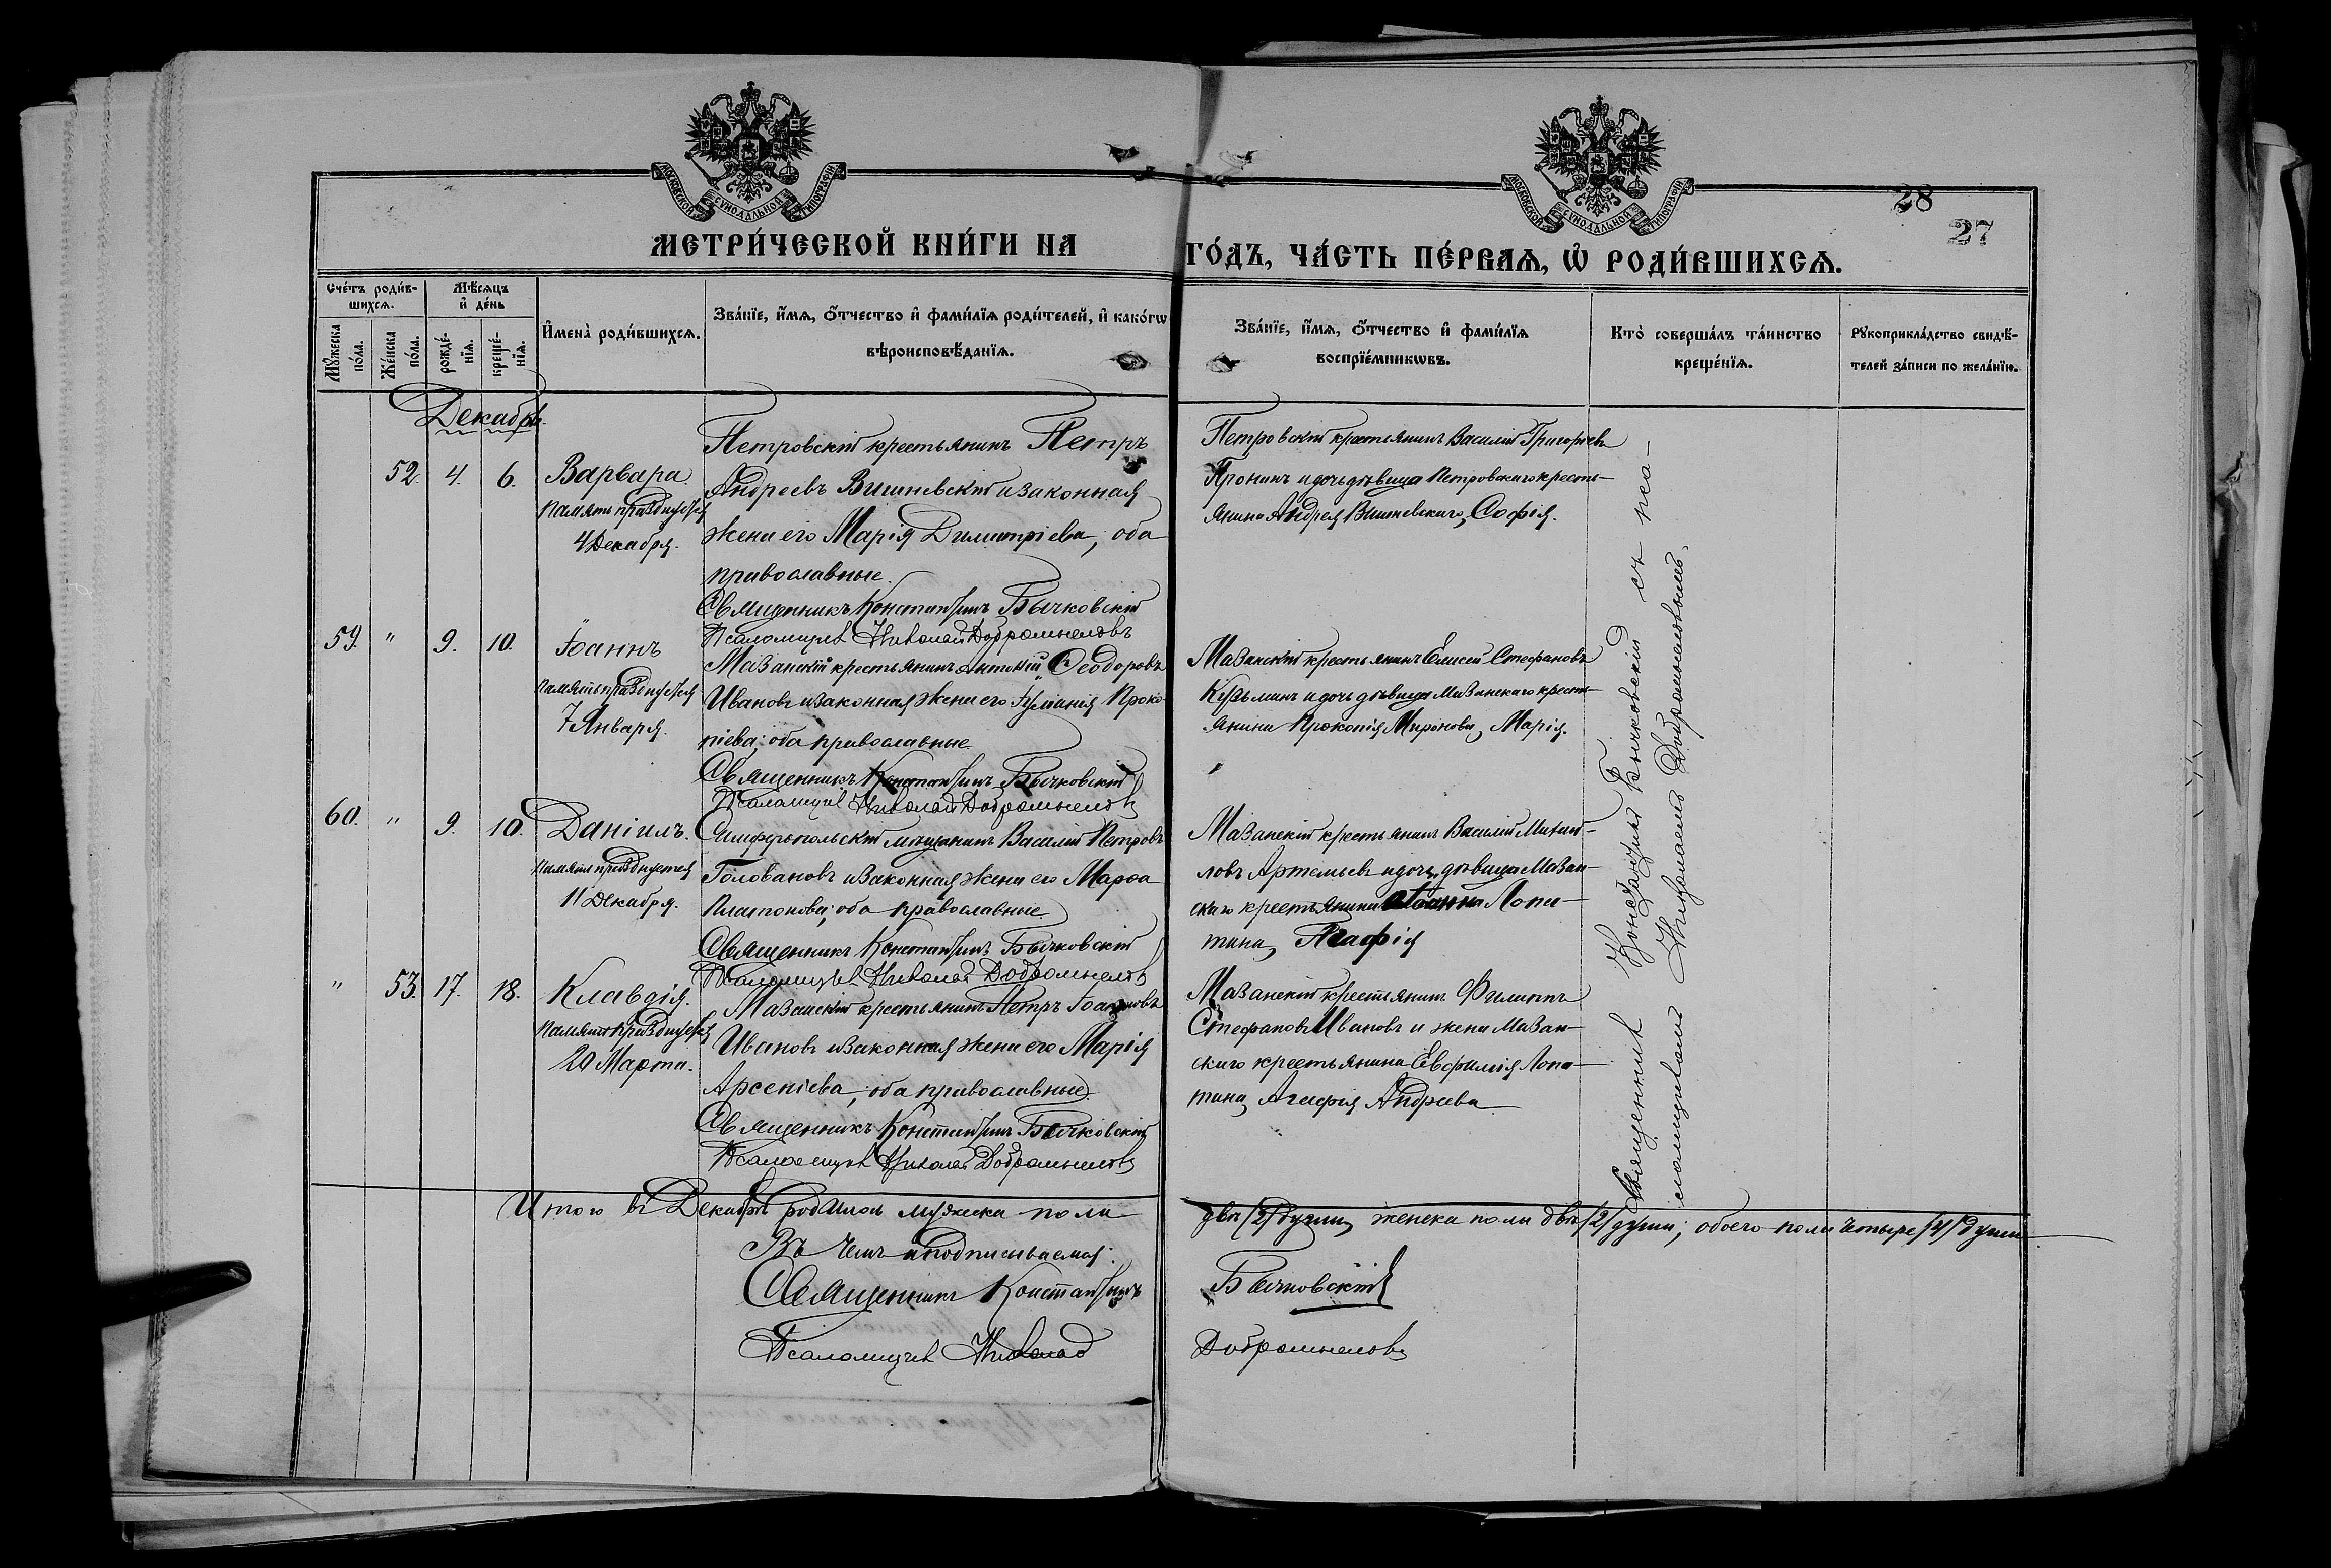 МОСКОВСКОЙ СѴНОДАЛЬНОЙ ТИПОГРАФІИ
МОСКОВСКОЙ СѴНОДАЛЬНОЙ ТИПОГРАФІИ
28
27
МЕТРИ́ЧЕСКОЙ КНИ́ГИ НА ГО́ДЪ, ЧА́СТЬ ПЕ́РВАѦ, Ѡ РОДИ́ВШИХСѦ.
Сче́тъ роди́в-
шихсѧ.
Мѣ́сѧцъ
и́ де́нь
Мꙋ́жеска
по́ла.
Же́нска
по́ла.
рожде́-
нїѧ.
креще́-
нїѧ.
И҆мена̀ роди́вшихсѧ.
Зва́нїе, и҆́мѧ, ѻ҆́тчество и҆ фами́лїѧ роди́телей, и҆ како́гѡ
вѣроисповѣ́данїѧ.
Зва́нїе, и҆́мѧ, ѻ҆́тчество и҆ фами́лїѧ
воспрїе́мникѡвъ.
Кто̀ соверша́лъ та́инство
креще́нїѧ.
Рꙋкоприкла́дство свидѣ́-
телей за́писи по жела́нїю.
Декабрь.
52. 4. 6. Варвара
Память празднуется
4 Декабря.
Петровскій крестьянинъ Петръ
Андреевъ Вишневскій и законная
жена его Марія Димитріева, оба
православные.
Священникъ Константинъ Бычковскій
Псаломщикъ Николай Добромысловъ
Петровскій крестьянинъ Василій Григорьевъ
Пронинъ и дочь дѣвица Петровскаго кресть-
янина Андрея Вишневскаго, Софія.
59. " 9. 10. Іоаннъ
Память празднуется
7 Января.
Мазанскій крестьянинъ Антоній Ѳеодоровъ
Ивановъ и законная жена его Іуліанія Проко-
піева; оба православные.
Священникъ Константинъ Бычковскій
Псаломщикъ Николай Добромысловъ
Мазанскій крестьянинъ Елисей Стефановъ
Кузьминъ и дочь дѣвица Мазанскаго кресть-
янина Прокопія Миронова, Марія.
60. " 9. 10. Даніилъ.
Память празднуется
11 Декабря.
Симферопольскій мѣщанинъ Василій Петровъ
Головановъ и законная жена его Марѳа
Платонова; оба православные.
Священникъ Константинъ Бычковскій
Псаломщикъ Николай Добромысловъ
Мазанскій крестьянинъ Василій Михай-
ловъ Артемьевъ и дочь дѣвица Мазан-
скаго крестьянина Іоанна Лопа-
тина, Агафія
" 53. 17. 18. Клавдія.
Память празднуется
20 Марта.
Мазанскій крестьянинъ Петръ Іоанновъ
Ивановъ и законная жена его Марія
Арсеніева, оба православные
Священникъ Константинъ Бычковскій
Псаломщикъ Николай Добромысловъ
Мазанскій крестьянинъ Филиппъ
Стефановъ Ивановъ и жена Мазан-
скаго крестьянина Евфимія Лопа-
тина, Агафія Андреева
Священникъ Константинъ Бычковскій съ пса-
ломщикомъ Николаемъ Добромысловымъ.
Итого въ Декабрѣ родилось мужеска пола двѣ /2/ души, женска пола двѣ /2/ души; обоего пола четыре /4/ души
Въ чемъ и подписываемся:
Священникъ Константинъ Бычковскій
Псаломщикъ Николай Добромысловъ